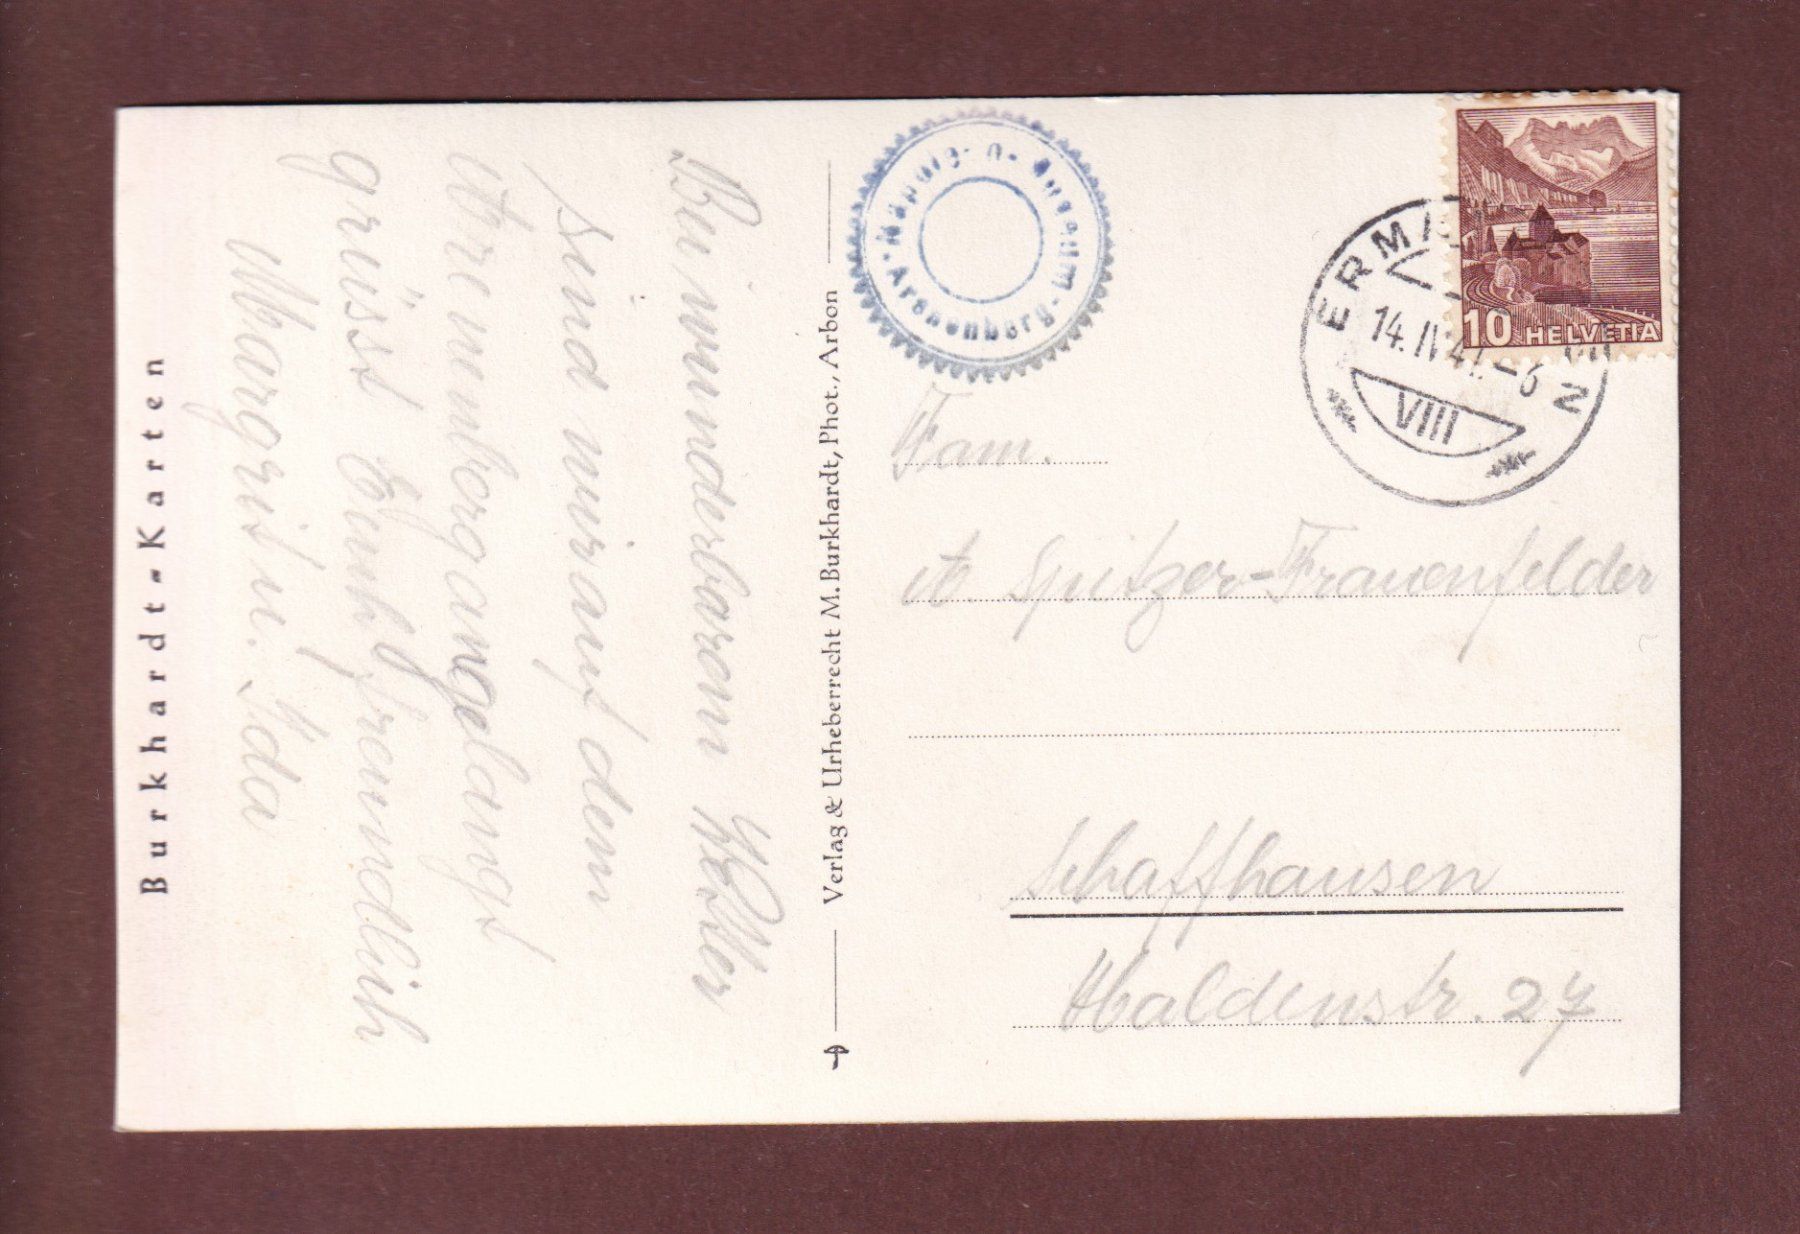 Burkhardt-Karten
Bei wunderbarem Wetter
sind wir auf dem
Arenenberg angelangt
grüsst Euch freundlich
Margrit u. Ida
Verlag & Urheberrecht M. Burkhardt, Phot., Arbon
Napoleon-Museum
Arenenberg
ERMATINGEN
14. IV 47. - 6
VIII
10 HELVETIA
Fam.
A. Spitzer-Frauenfelder
Schaffhausen
Haldenstr. 27